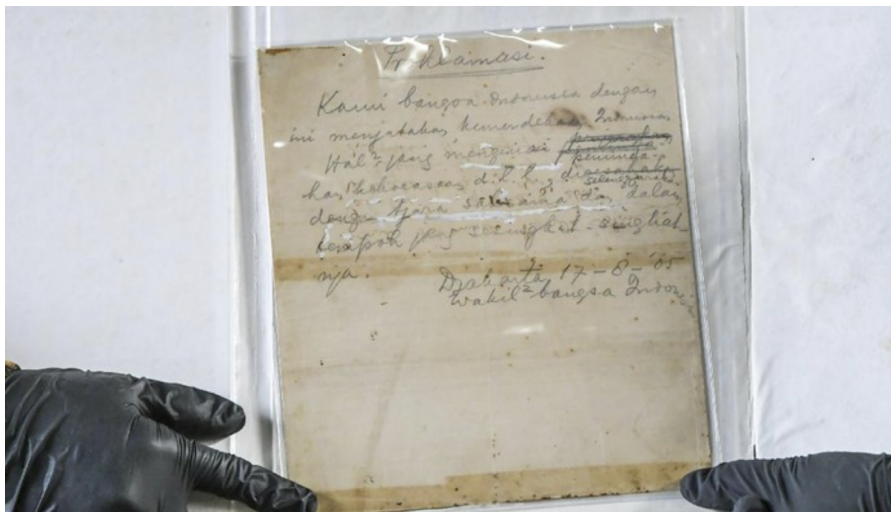 Proklamasi.
Kami bangsa Indonesia dengan
ini menjatakan kemerdekaan Indonesia
Hal² jang mengenai
peminda-
han kekoeasaan d.l.l., diselenggarakan
dengan tjara saksama dan dalam
tempoh jang sesingkat-singkat-
nja.
Djakarta, 17 - 8 - '05
Wakil² bangsa Indonesia